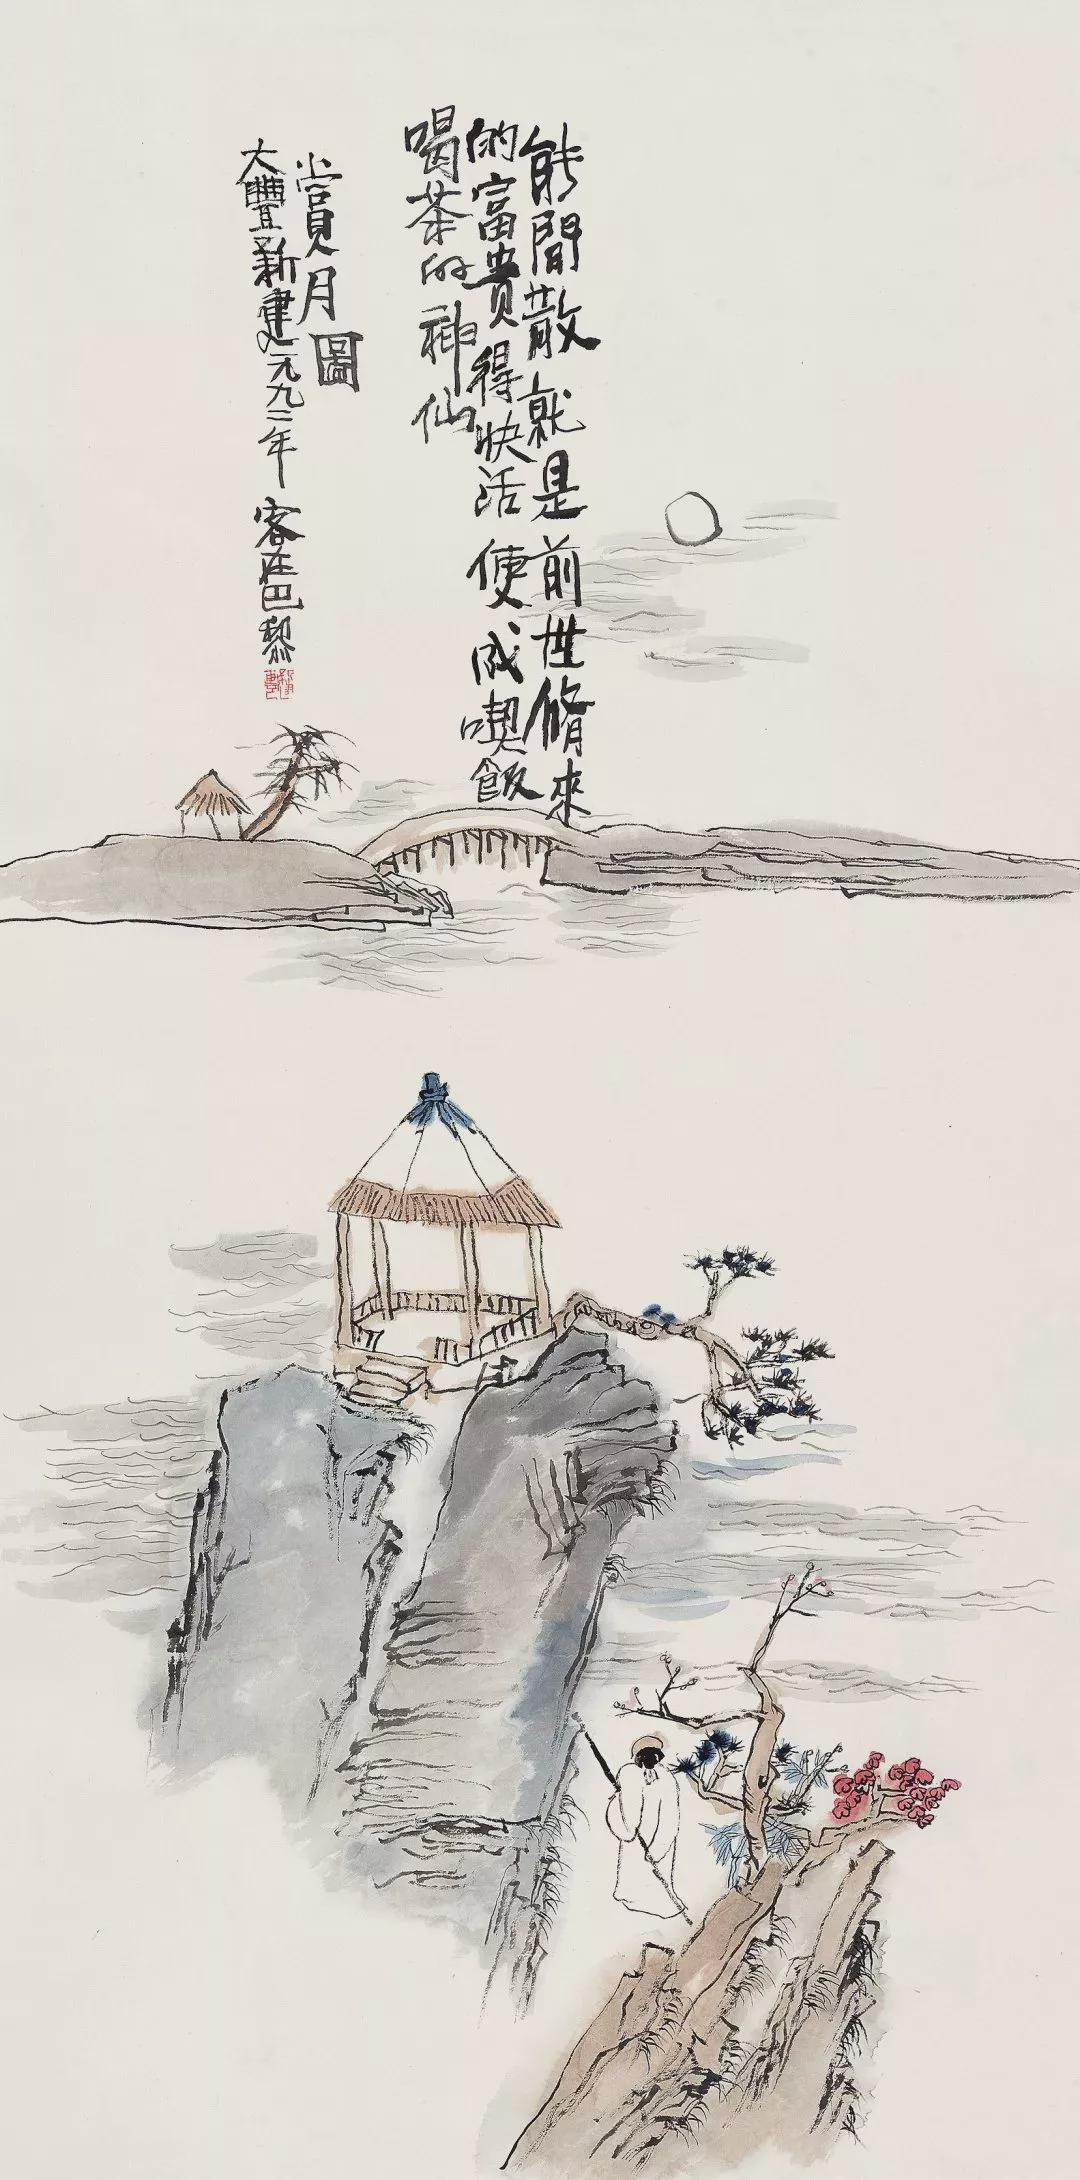 能閒散就是前世脩來
的富貴得快活便成喫飯
喝茶的神仙
賞月圖
大豐新建一九九二年客在巴黎